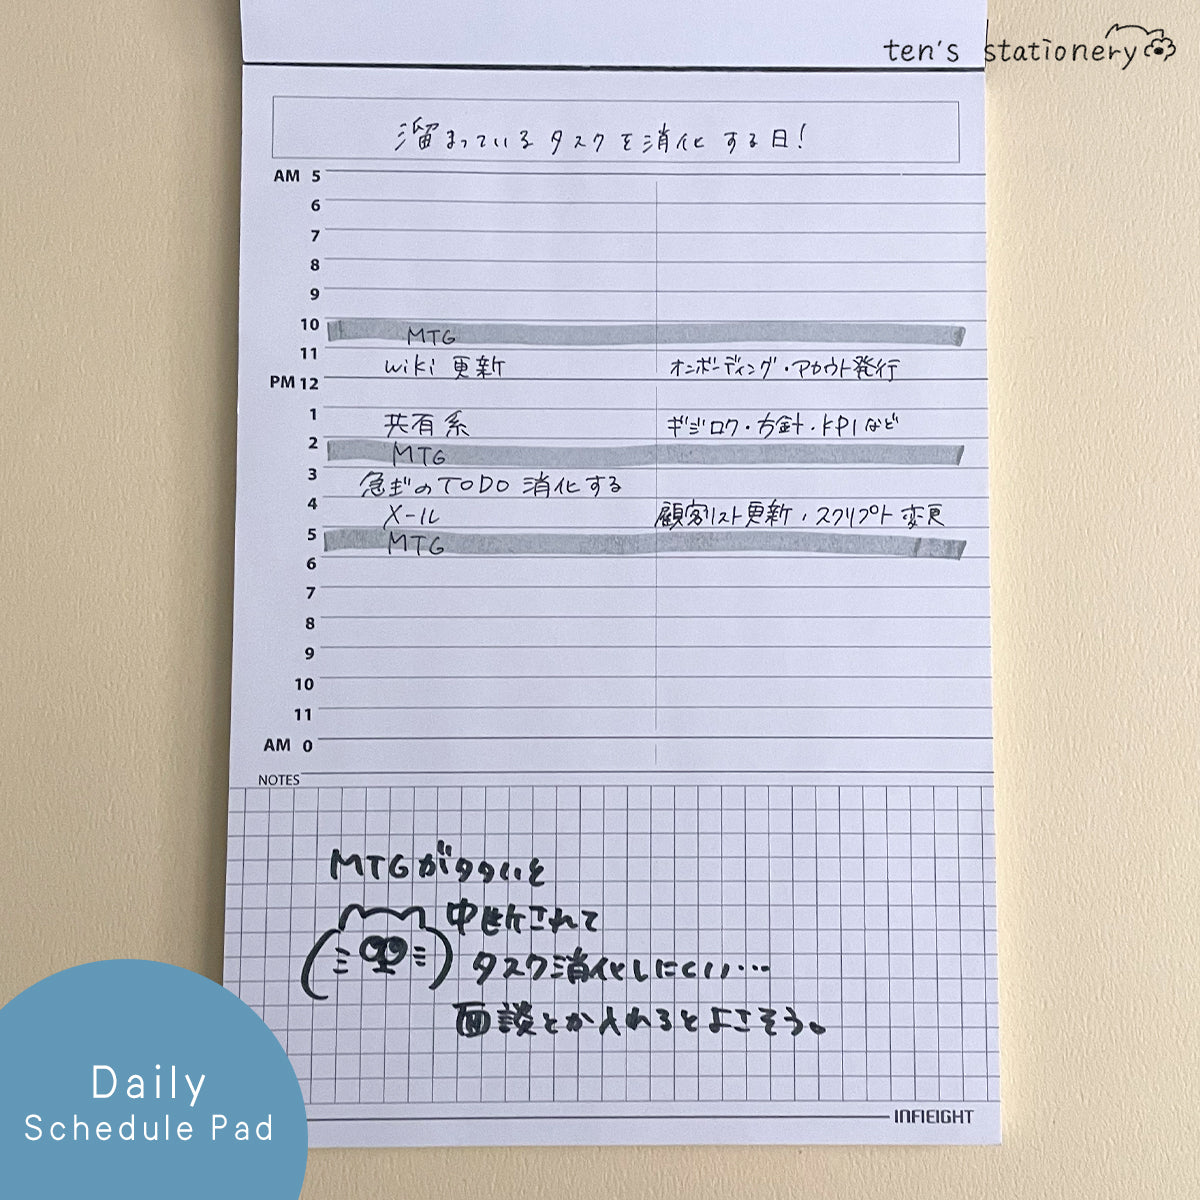 ten's stationery
溜まっているタスクを消化する日!
AM 5
6
7
8
9
10 MTG
11 wiki 更新 オンボーディング・アカウト発行
PM 12
1 共有系 ギジロク・方針・KPIなど
2 MTG
3 急ぎのTODO 消化する
4 メール 顧客リスト更新,スクリプト変更
5 MTG
6
7
8
9
10
11
AM 0
NOTES
MTGが多いと
中断されて
タスク消化しにくい…
面談とか入れるとよこそう。
INFIEIGHT
Daily
Schedule Pad